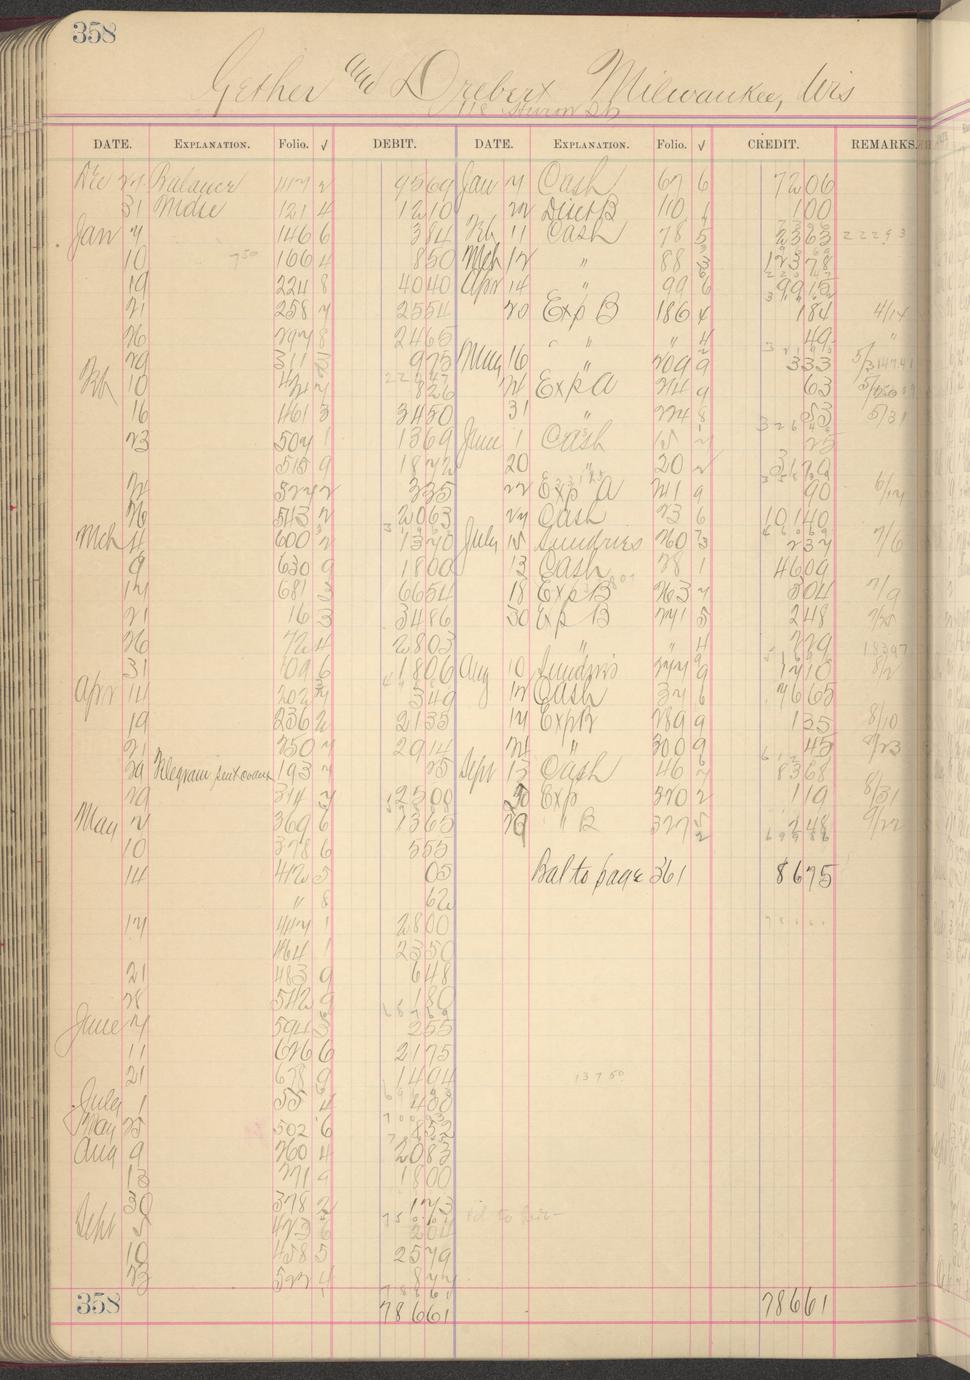 358
Gether and Drebert Milwaukee, Wis
118 Huron St
DATE. EXPLANATION. Folio. √ DEBIT. DATE. EXPLANATION. Folio. √ CREDIT. REMARKS.
Dec 27 Balance 117 2 9569 Jan 7 Cash 67 6 7206
31 Mdse 121 4 1210 22 Disct B 110 100
Jan 7 146 6 384 Feb 11 Cash 78 5 2363
10 166 4 850 Mch 12 " 88 3 12378
19 224 8 4040 Apr 14 " 99 6 9915
21 258 7 2554 20 Exp B 186 4 184 4/14
26 297 8 2465 " " 4 49 "
29 311 975 May 16 " 209 9 333
Feb 10 826 24 Exp A 214 9 63
16 461 3 3450 31 " 224 8 53 5/31
23 504 1 1369 June 1 Cash 15 2 25
515 9 1872 20 " 20 2 3179
24 527 2 335 22 Exp A 241 9 90 6/14
26 543 2 2063 27 Cash 23 6 10140
Mch 4 600 2 1370 July 15 Sundries 260 237 7/6
9 630 9 1800 13 Cash 28 1 4609
17 681 3 6654 18 Exp B 263 7 304 7/9
21 16 3 3486 30 Exp B 271 5 248 7/25
26 72 4 2803 " " 4 229
31 109 6 1806 Aug 10 Sundries 277 9 1710 8/2
Apr 14 202 349 12 Cash 37 6 7665
19 236 2 2135 17 Exp 289 9 135 8/10
21 250 7 2914 24 " 300 9 45 8/23
29 Telegram sent 193 7 25 Sept 13 Cash 46 7 8368
29 314 7 2500 20 Exp 320 2 119 8/31
May 2 369 6 1365 29 " B 327 5 248 9/22
10 378 6 555
14 412 5 05 Bal to page 361 8675
" 8 62
17 447 1 2800
464 1 2350
21 483 9 648
28 542 9 180
June 7 594 3 255
11 626 6 2175
21 678 9 1404
July 1 55 4 400
May 25 502 6 852
Aug 9 260 4 2083
13 271 9 1800
30 378 2 173
Sept 5 423 6 204
10 458 5 2579
23 527 4 877
358 78661 78661